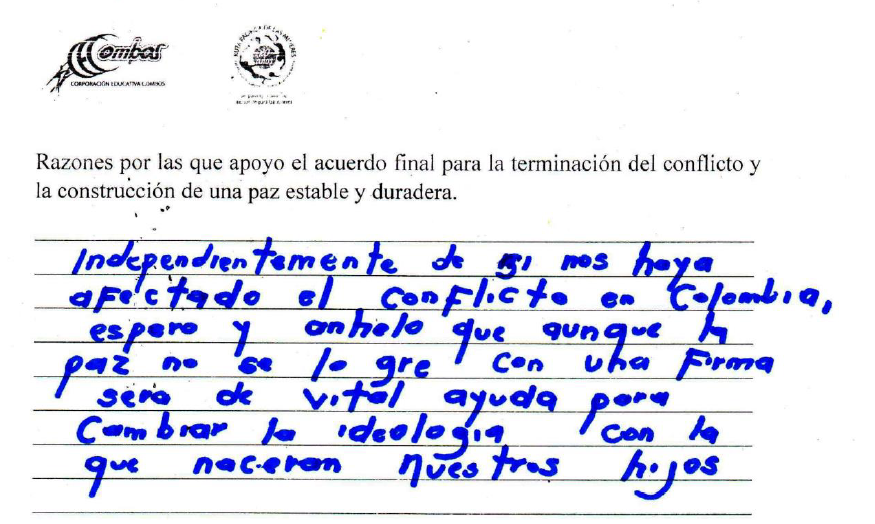 Combos
CORPORACIÓN EDUCATIVA COMBOS
RUTA PACIFICA DE LAS MUJERES
Razones por las que apoyo el acuerdo final para la terminación del conflicto y
la construcción de una paz estable y duradera.
Independientemente de si nos haya
afectado el conflicto en Colombia,
espero y anhelo que aunque la
paz no se logre con una firma
sera de vital ayuda para
Cambiar la ideologia con la
que naceran nuestros hijos